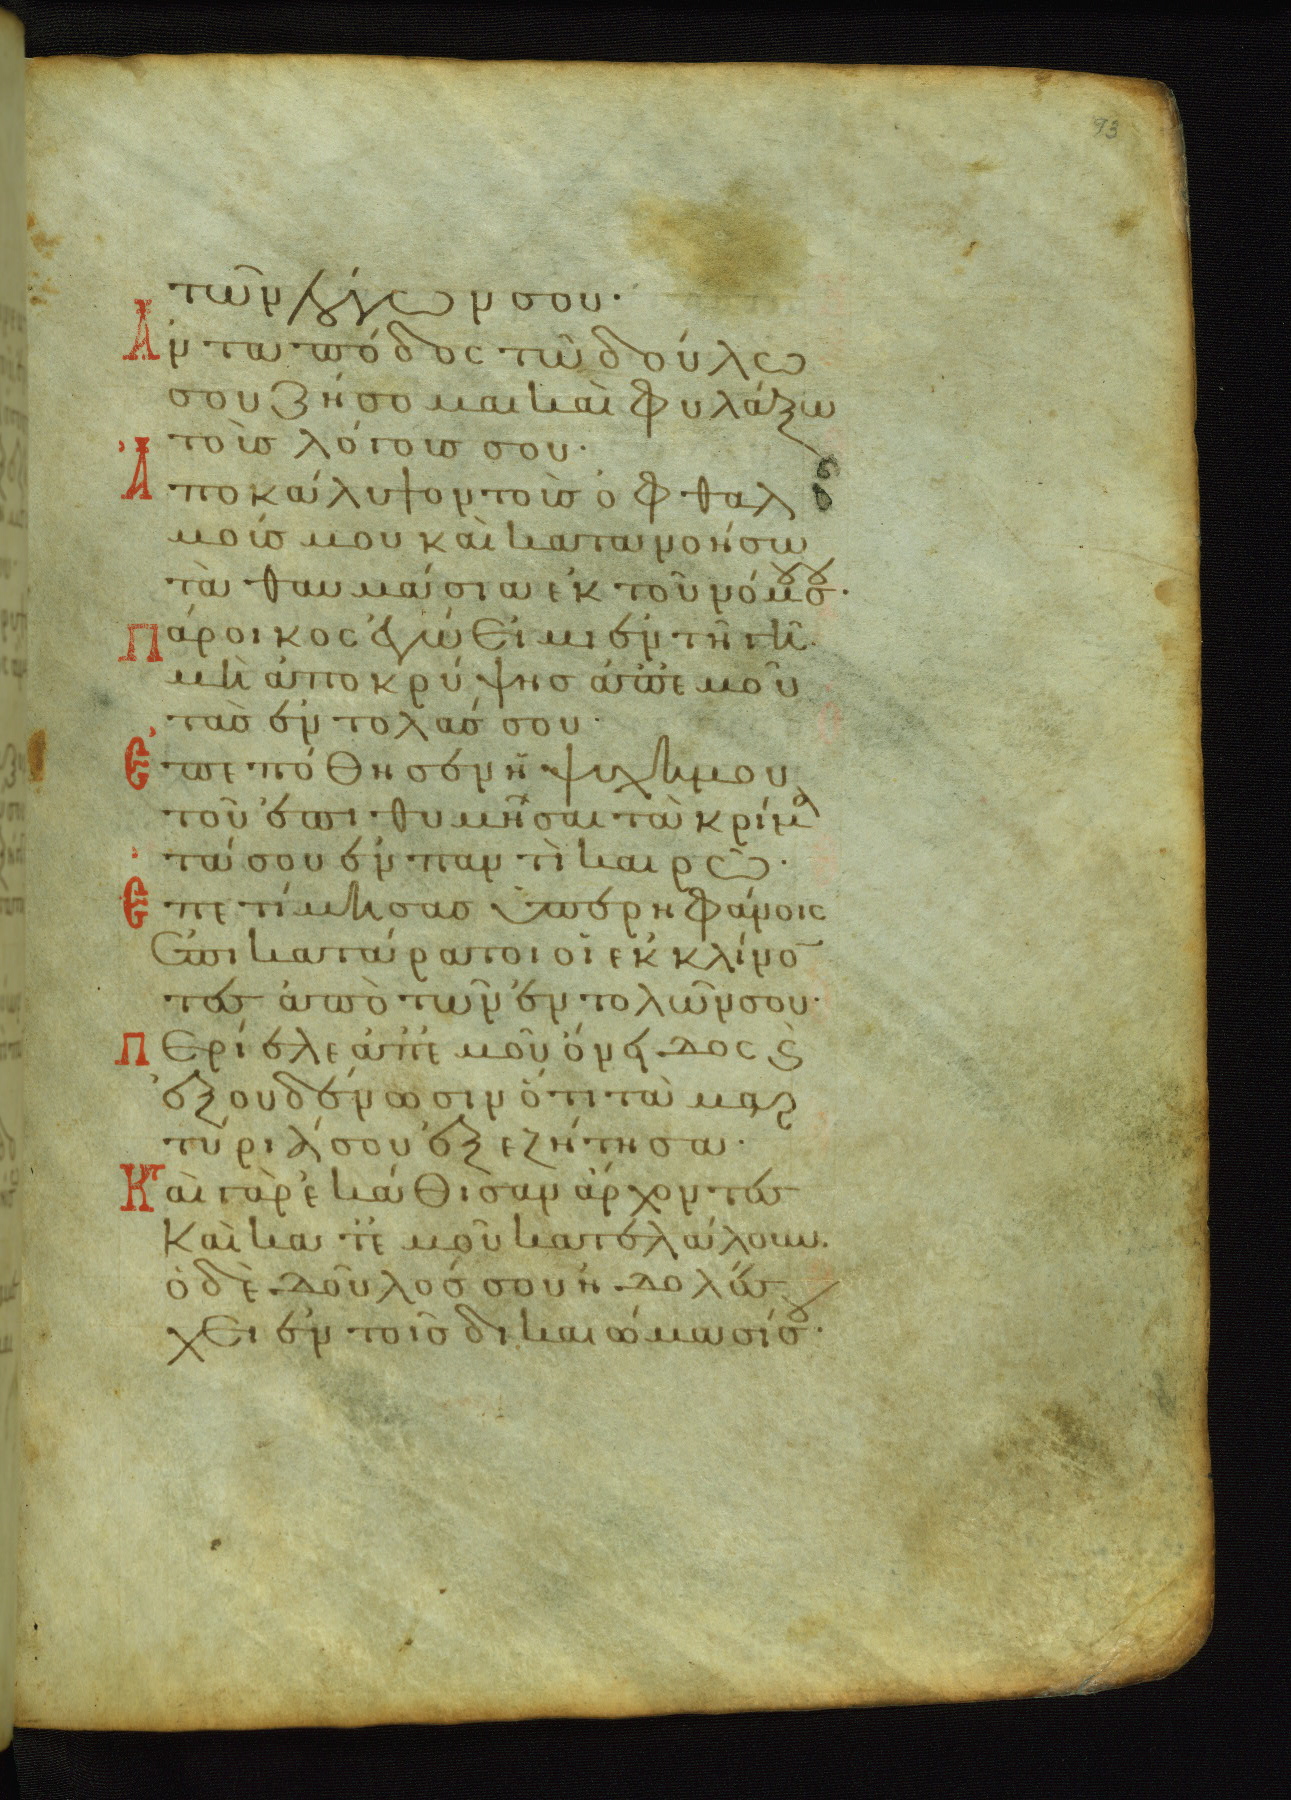 93
τῶν λόγων σου·
Ἀνταπόδος τῶ δούλω
σου ζήσομαι καὶ φυλάξω
τοὺς λόγους σου·
Ἀποκάλυψον τοὺς ὀφθαλ
μούς μου καὶ κατανοήσω
τὰ θαυμάσια ἐκ τοῦ νόμου σου·
Πάροικος ἐγώ εἰμι ἐν τῆ γῆ·
μὴ ἀποκρύψης ἀπ' ἐμοῦ
τὰς ἐντολάς σου·
Ἐπεπόθησεν ἡ ψυχή μου
τοῦ ἐπιθυμῆσαι τὰ κρίμα
τά σου ἐν παντὶ καιρῶ·
Ἐπετίμησας ὑπερηφάνοις
ἐπικατάρατοι οἱ ἐκκλίνο
τες ἀπὸ τῶν ἐντολῶν σου·
Περίελε ἀπ' ἐμοῦ ὄνειδος ϗ
ἐξουδένωσιν ὅτι τὰ μαρ
τύριά σου ἐξεζήτησα·
Καὶ γὰρ ἐκάθισαν ἄρχοντες
καὶ κατ' ἐμοῦ κατελάλουν·
ὁ δὲ δοῦλός σου ἠδολέσ
χει ἐν τοῖς δικαιώμασί σου·